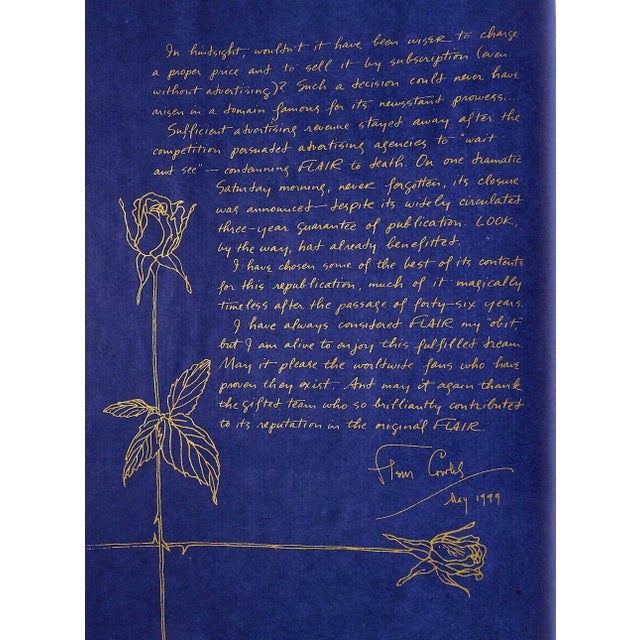 In hindsight, wouldn't it have been wiser to charge
a proper price and to sell it by subscription (even
without advertising)? Such a decision could never have
arisen in a domain famous for its newsstand prowess....
Sufficient advertising revenue stayed away after the
competition persuaded advertising agencies to "wait
and see" — condemning FLAIR to death. On one dramatic
Saturday morning, never forgotten, its closure
was announced — despite its widely circulated
three-year guarantee of publication. LOOK,
by the way, had already benefitted.
I have chosen some of the best of its contents
for this republication, much of it magically
timeless after the passage of forty-six years.
I have always considered FLAIR my "obit"
but I am alive to enjoy this fulfilled dream.
May it please the worldwide fans who have
proven they exist. And may it again thank
the gifted team who so brilliantly contributed
to its reputation in the original FLAIR.
Fleur Cowles
May 1999